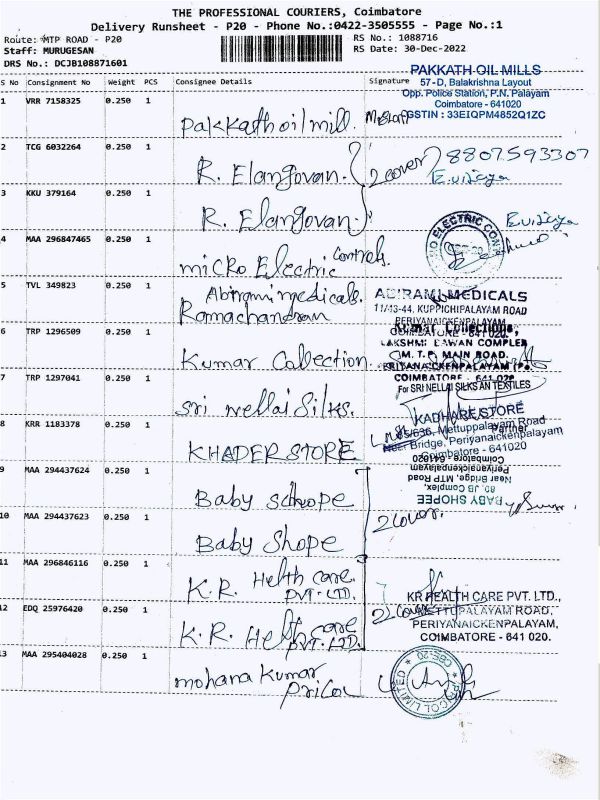 THE PROFESSIONAL COURIERS, Coimbatore
Delivery Runsheet - P20 - Phone No.:0422-3505555 - Page No.:1
Route: MTP ROAD - P20
RS No.: 1088716
Staff: MURUGESAN
RS Date: 30-Dec-2022
DRS No.: DCJB108871601
S No Consignment No Weight PCS Consignee Details Signature
PAKKATH OIL MILLS
57-D, Balakrishna Layout
Opp. Police Station, P.N. Palayam
Coimbatore - 641020
GSTIN : 33EIQPM4852Q1ZC
1 VRR 7158325 0.250 1
Pakkath oil mill.
2 TCG 6032264 0.250 1
R. Elangovan. 2 cover 8807593307
E.vijaya
3 KKU 379164 0.250 1
R. Elangovan
E.vijaya
4 MAA 296847465 0.250 1
Micro Electric Controls.
5 TVL 349823 0.250 1
Abirami medicals.
Ramachandran
ABIRAMI MEDICALS
11/43-44, KUPPICHIPALAYAM ROAD
PERIYANAICKENPALAYAM,
COIMBATORE - 641 020.
6 TRP 1296509 0.250 1
Kumar Collection
Kumar Collections,
LAKSHMI BAWAN COMPLEX
M. T. P. MAIN ROAD,
PERIYANAICKENPALAYAM (P.O)
COIMBATORE - 641 020
7 TRP 1297041 0.250 1
Sri Nellai Silks.
For SRI NELLAI SILKS AN TEXTILES
Partner
8 KRR 1183378 0.250 1
KHADER STORE
KADHAR STORE
5/636, Mettuppalayam Road
Near Bridge, Periyanaickenpalayam
Coimbatore - 641020
9 MAA 294437624 0.250 1
Baby Schope
2 Cover.
BABY SHOPEE
80, JB Complex,
Near Bridge, MTP Road
Periyanaickenpalayam
Coimbatore - 641020
10 MAA 294437623 0.250 1
Baby Shope
11 MAA 296846116 0.250 1
K.R. Helth care
PVT. LTD.
2 Cover
KR HEALTH CARE PVT. LTD.,
METTUPALAYAM ROAD,
PERIYANAICKENPALAYAM,
COIMBATORE - 641 020.
12 EDQ 25976420 0.250 1
K.R. Helth care
PVT. LTD.
13 MAA 295404028 0.250 1
Mohana Kumar
Pricol
PRICOL LIMITED
CBE-20